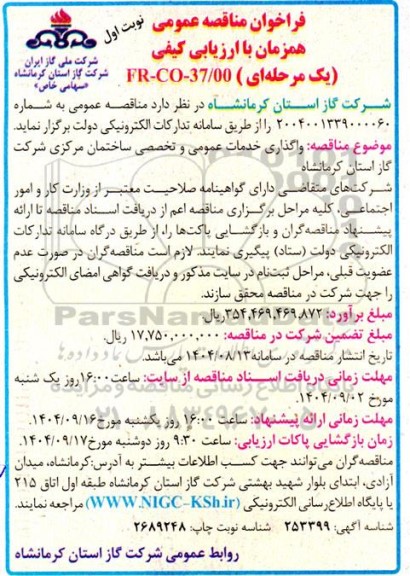 فراخوان مناقصه عمومی
همزمان با ارزیابی کیفی
(یک مرحله‌ای) FR-CO-37/00
نوبت اول
شرکت ملی گاز ایران
شرکت گاز استان کرمانشاه
«سهامی خاص»
شرکت گاز استان کرمانشاه در نظر دارد مناقصه عمومی به شماره
۲۰۰۴۰۰۱۳۳۹۰۰۰۰۶۰ را از طریق سامانه تدارکات الکترونیکی دولت برگزار نماید.
موضوع مناقصه: واگذاری خدمات عمومی و تخصصی ساختمان مرکزی شرکت
گاز استان کرمانشاه
شرکت‌های متقاضی دارای گواهینامه صلاحیت معتبر از وزارت کار و امور
اجتماعی. کلیه مراحل برگزاری مناقصه اعم از دریافت اسناد مناقصه تا ارائه
پیشنهاد مناقصه‌گران و بازگشایی پاکت‌ها را، از طریق درگاه سامانه تدارکات
الکترونیکی دولت (ستاد) پیگیری نمایند. لازم است مناقصه‌گران در صورت عدم
عضویت قبلی، مراحل ثبت‌نام در سایت مذکور و دریافت گواهی امضای الکترونیکی
را جهت شرکت در مناقصه محقق سازند.
مبلغ برآورد: ۳۵۴,۴۶۹,۴۶۹,۸۷۲ریال.
مبلغ تضمین شرکت در مناقصه: ۱۷,۷۵۰,۰۰۰,۰۰۰ ریال.
تاریخ انتشار مناقصه در سامانه۱۴۰۴/۰۸/۱۳ می‌باشد.
مهلت زمانی دریافت اسناد مناقصه از سایت: ساعت۱۶:۰۰روز یک شنبه
مورخ ۱۴۰۴/۰۹/۰۲.
مهلت زمانی ارائه پیشنهاد: ساعت ۱۶:۰۰ روز یکشنبه مورخ۱۴۰۴/۰۹/۱۶.
زمان بازگشایی پاکات ارزیابی: ساعت ۹:۳۰ روز دوشنبه مورخ۱۴۰۴/۰۹/۱۷.
مناقصه‌گران می‌توانند جهت کسب اطلاعات بیشتر به آدرس:کرمانشاه، میدان
آزادی، ابتدای بلوار شهید بهشتی شرکت گاز استان کرمانشاه طبقه اول اتاق ۲۱۵
یا پایگاه اطلاع‌رسانی الکترونیکی (WWW.NIGC-KSh.ir) مراجعه نمایند.
شناسه آگهی: ۲۵۳۳۹۹ شناسه نوبت چاپ: ۲۶۸۹۲۴۸
روابط عمومی شرکت گاز استان کرمانشاه